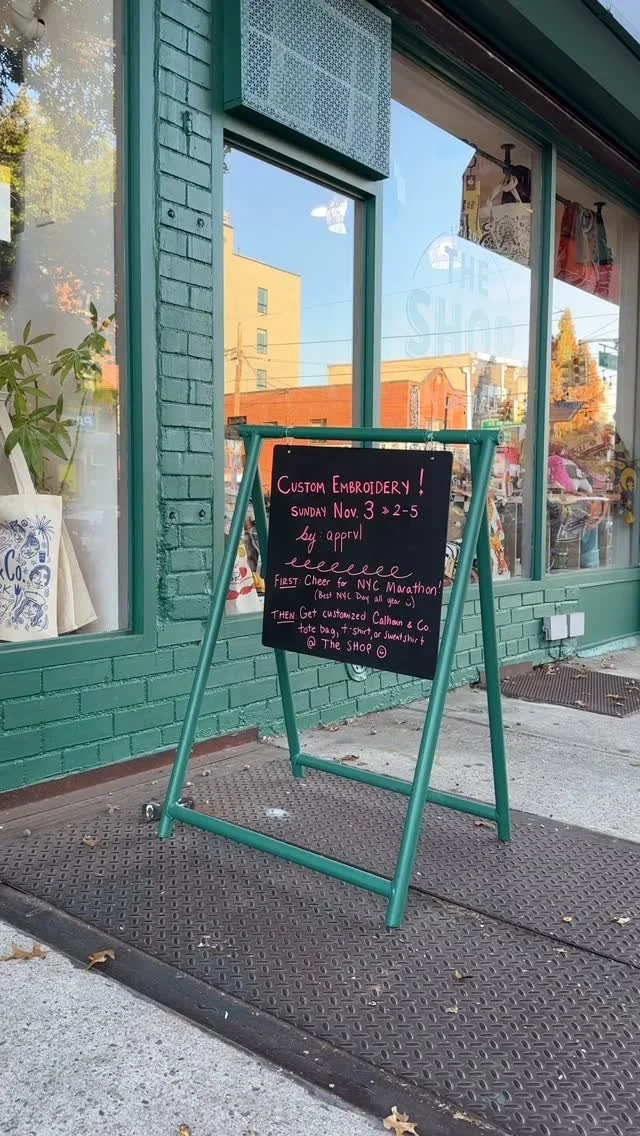 THE
SHOP
CUSTOM EMBROIDERY!
SUNDAY NOV. 3 » 2-5
by apprvl
FIRST: Cheer for NYC Marathon!
(Best NYC Day all year :)
THEN: Get customized Calhoun & Co.
tote bag, t-shirt, or sweatshirt
@ The SHOP ☺
Co.